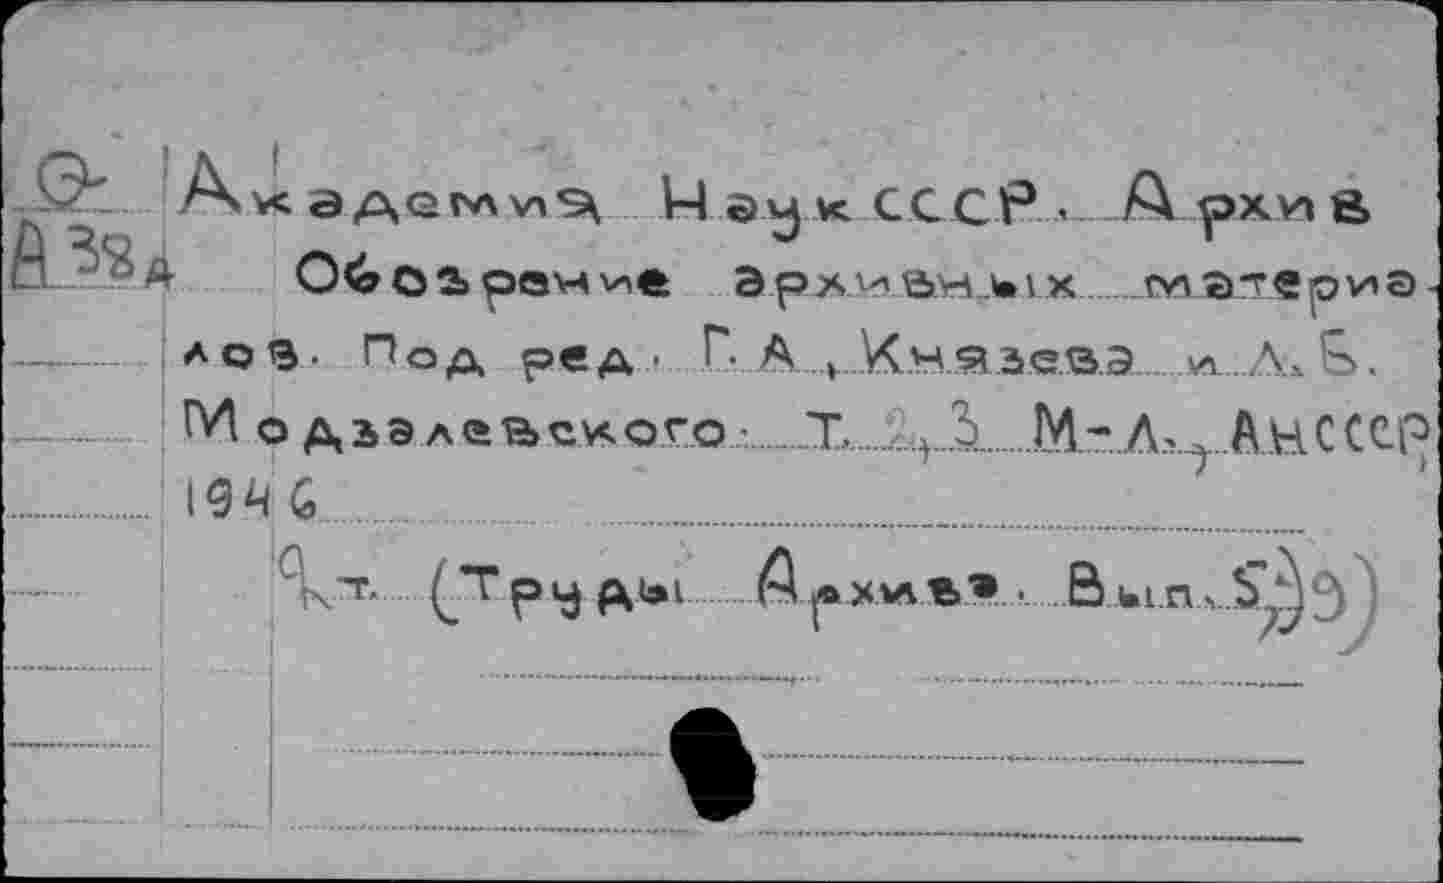 Академия Наук СССР. Архив
А38д Обозрение архивных материа-
лов. Под ред. Г. А. Князева и Л. Б.
Модзалевского. Т. 2, 3 М-Л., АНСССР,
1946
т. (Труды Архива. Вып. 5,